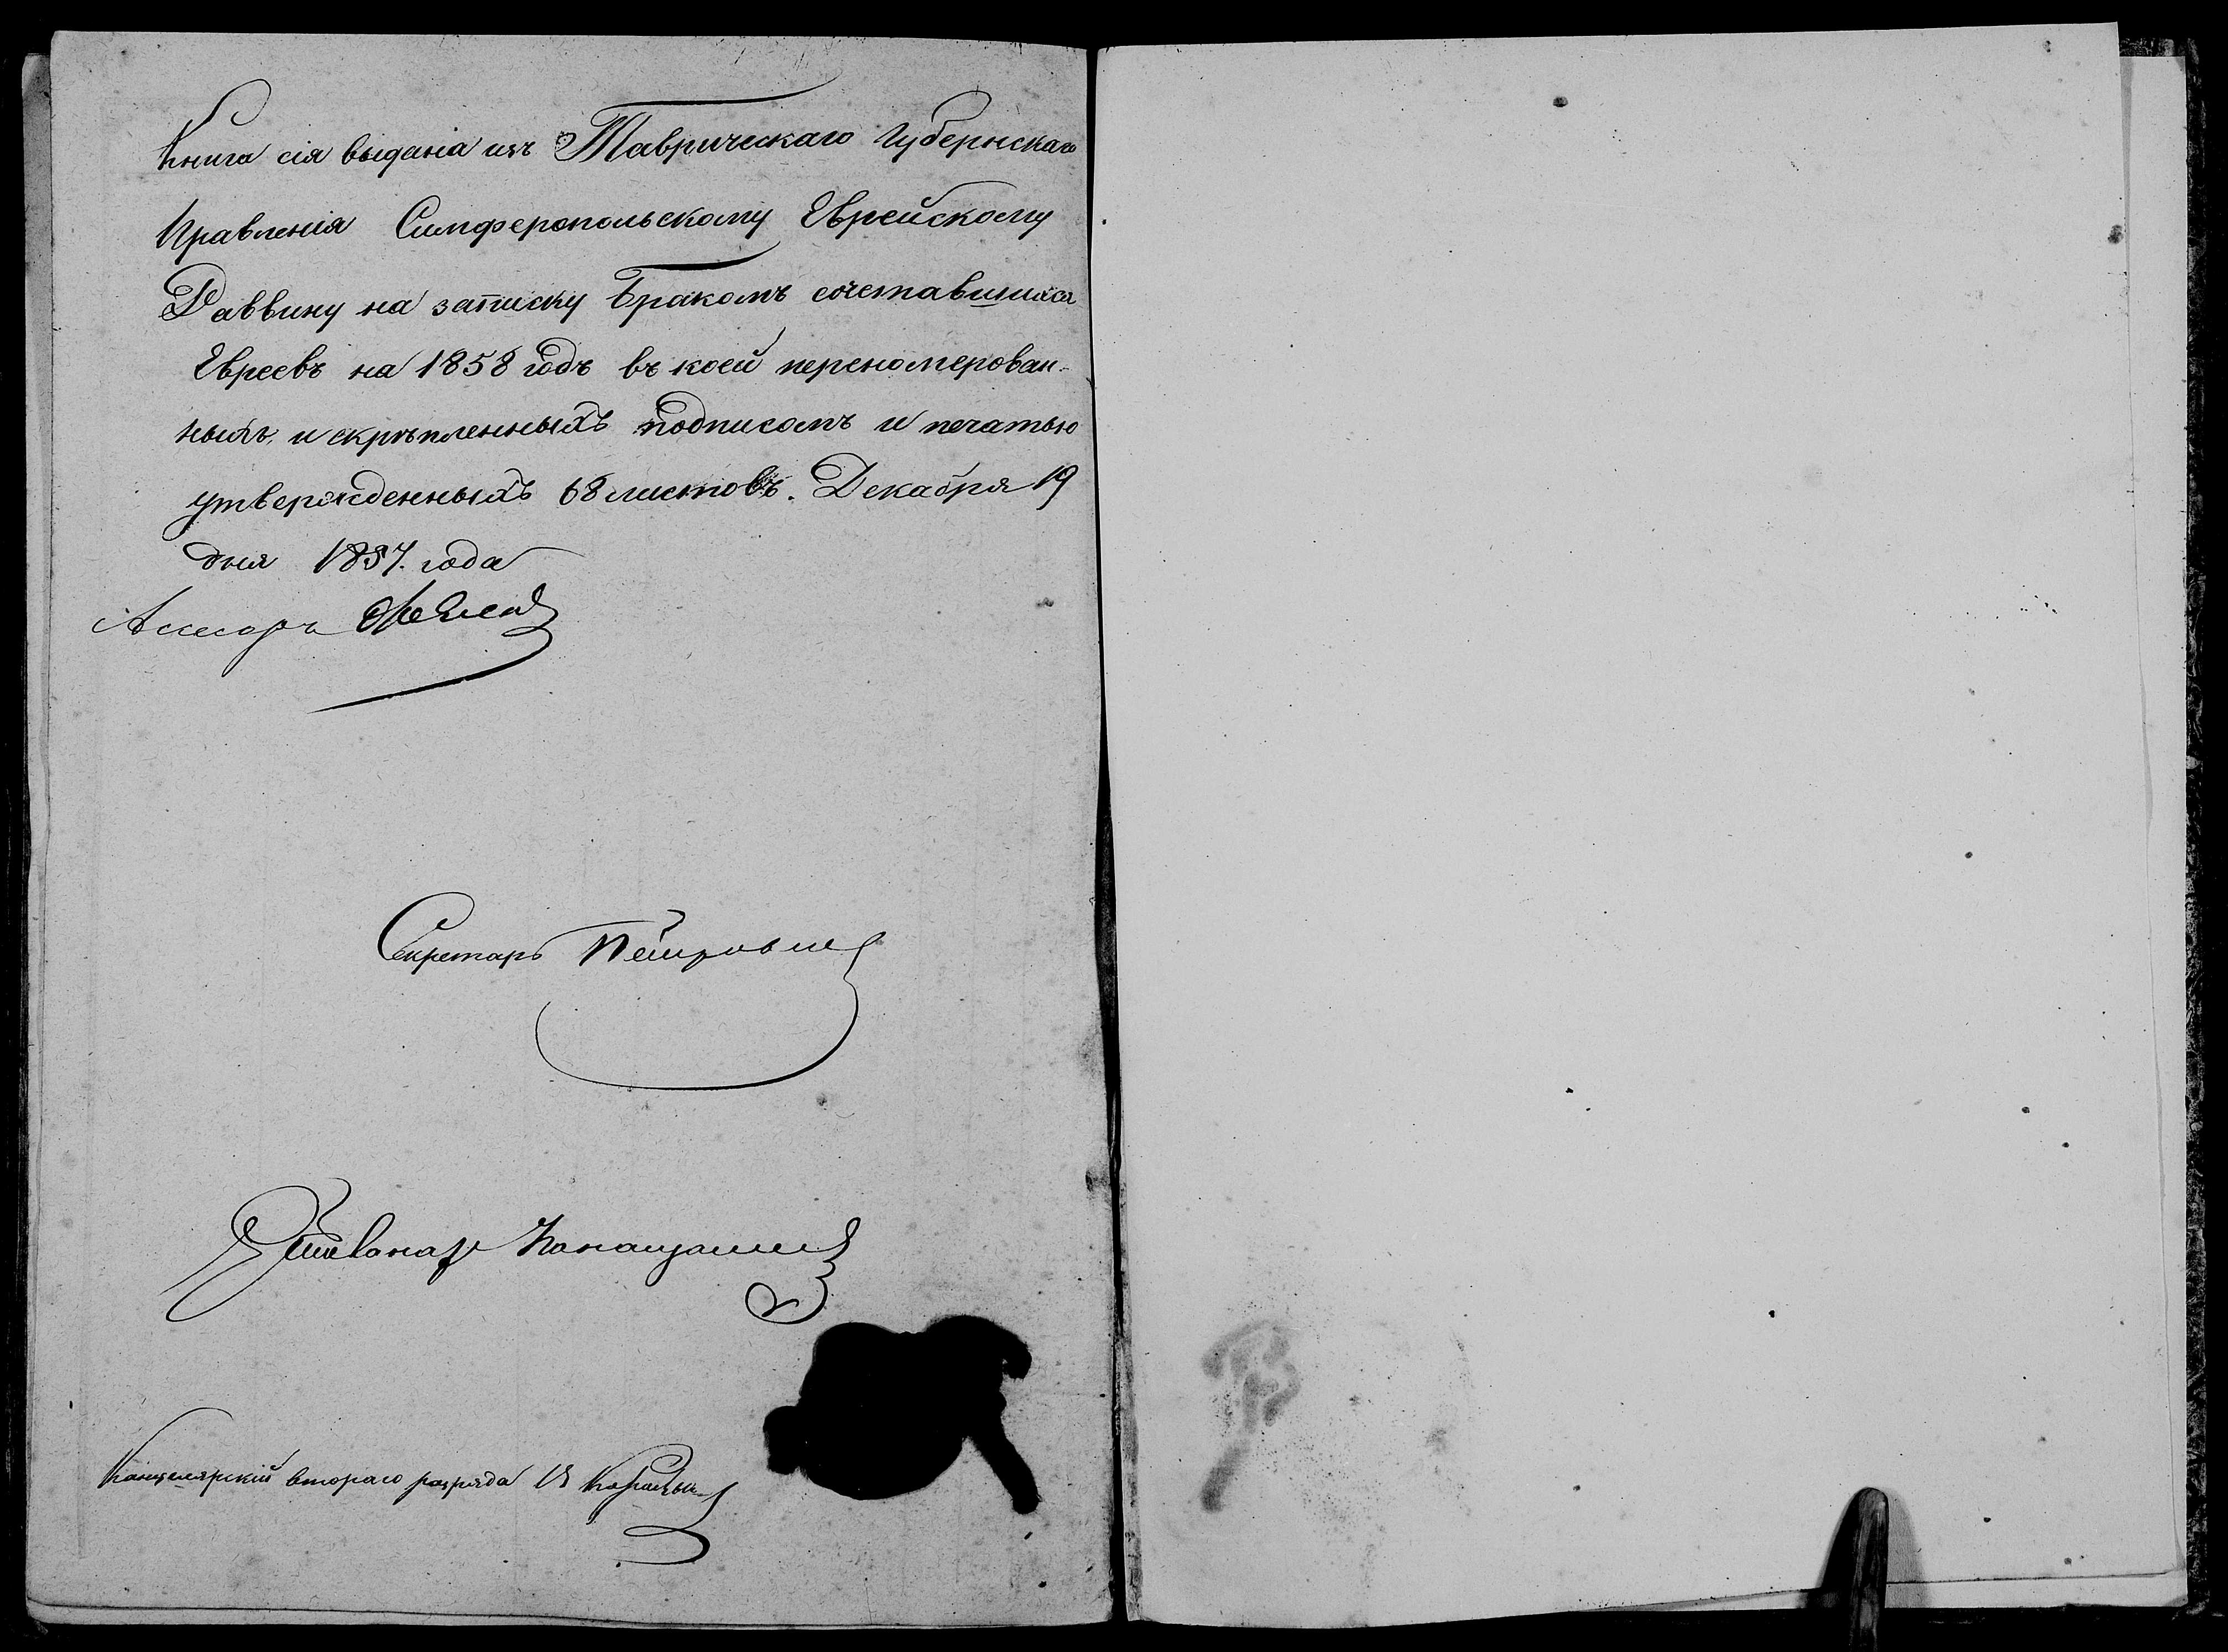 Книга сія выдана изъ Таврическаго Губернскаго
Правленія Симферопольскому Еврейскому
Раввину на записку Бракомъ сочетавшихся
Евреевъ на 1858 годъ въ коей переномерован-
ныхъ и скрѣпленныхъ подписомъ и печатью
утвержденныхъ 68 листовъ. Декабря 19
дня 1857. года
Асессоръ
Секретарь Петровъ
Канцелярскій втораго разряда